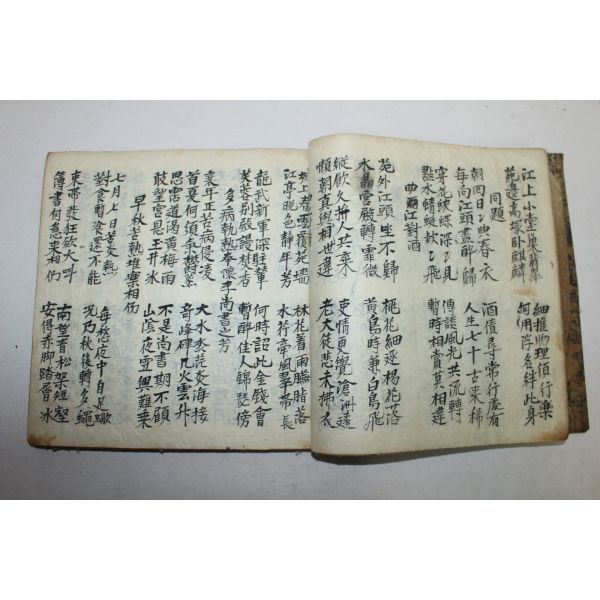 江上小堂巢翡翠
細推物理須行樂
苑邊高塚臥麒麟
何用浮名絆此身
同題
朝回日〻典春衣
酒債尋常行處有
每向江頭盡醉歸
人生七十古來稀
穿花蛺蝶深〻見
傳語風光共流轉
點水蜻蜓款〻飛
暫時相賞莫相違
曲江對酒
苑外江頭坐不歸
桃花細逐楊花落
水晶宮殿轉霏微
黃鳥時兼白鳥飛
縱飲久拚人共棄
吏情更覺滄洲遠
懶朝真與相世違
老大徒悲未拂衣
城上春雲覆苑墻
林花著雨臙脂落
江亭晚色靜年芳
水荇牽風翠帶長
龍武新軍深駐輦
何時詔此金錢會
芙蓉別殿謾焚香
暫醉佳人錦瑟傍
多病執熱奉懷李尚書之芳
衰年正苦病侵凌
大水淼茫炎海接
首夏何須氣鬱蒸
奇峰硉兀火雲升
思霑道渴黃梅雨
不是尚書期不顧
敢望宮恩玉井冰
山陰夜雪興難乘
早秋苦熱堆案相仍
七月七日苦炎熱
每愁夜中自足蝎
對食暫飡還不能
況乃秋後轉多蠅
束帶發狂欲大叫
南望青松架短壑
簿書何急來相仍
安得赤脚踏層冰